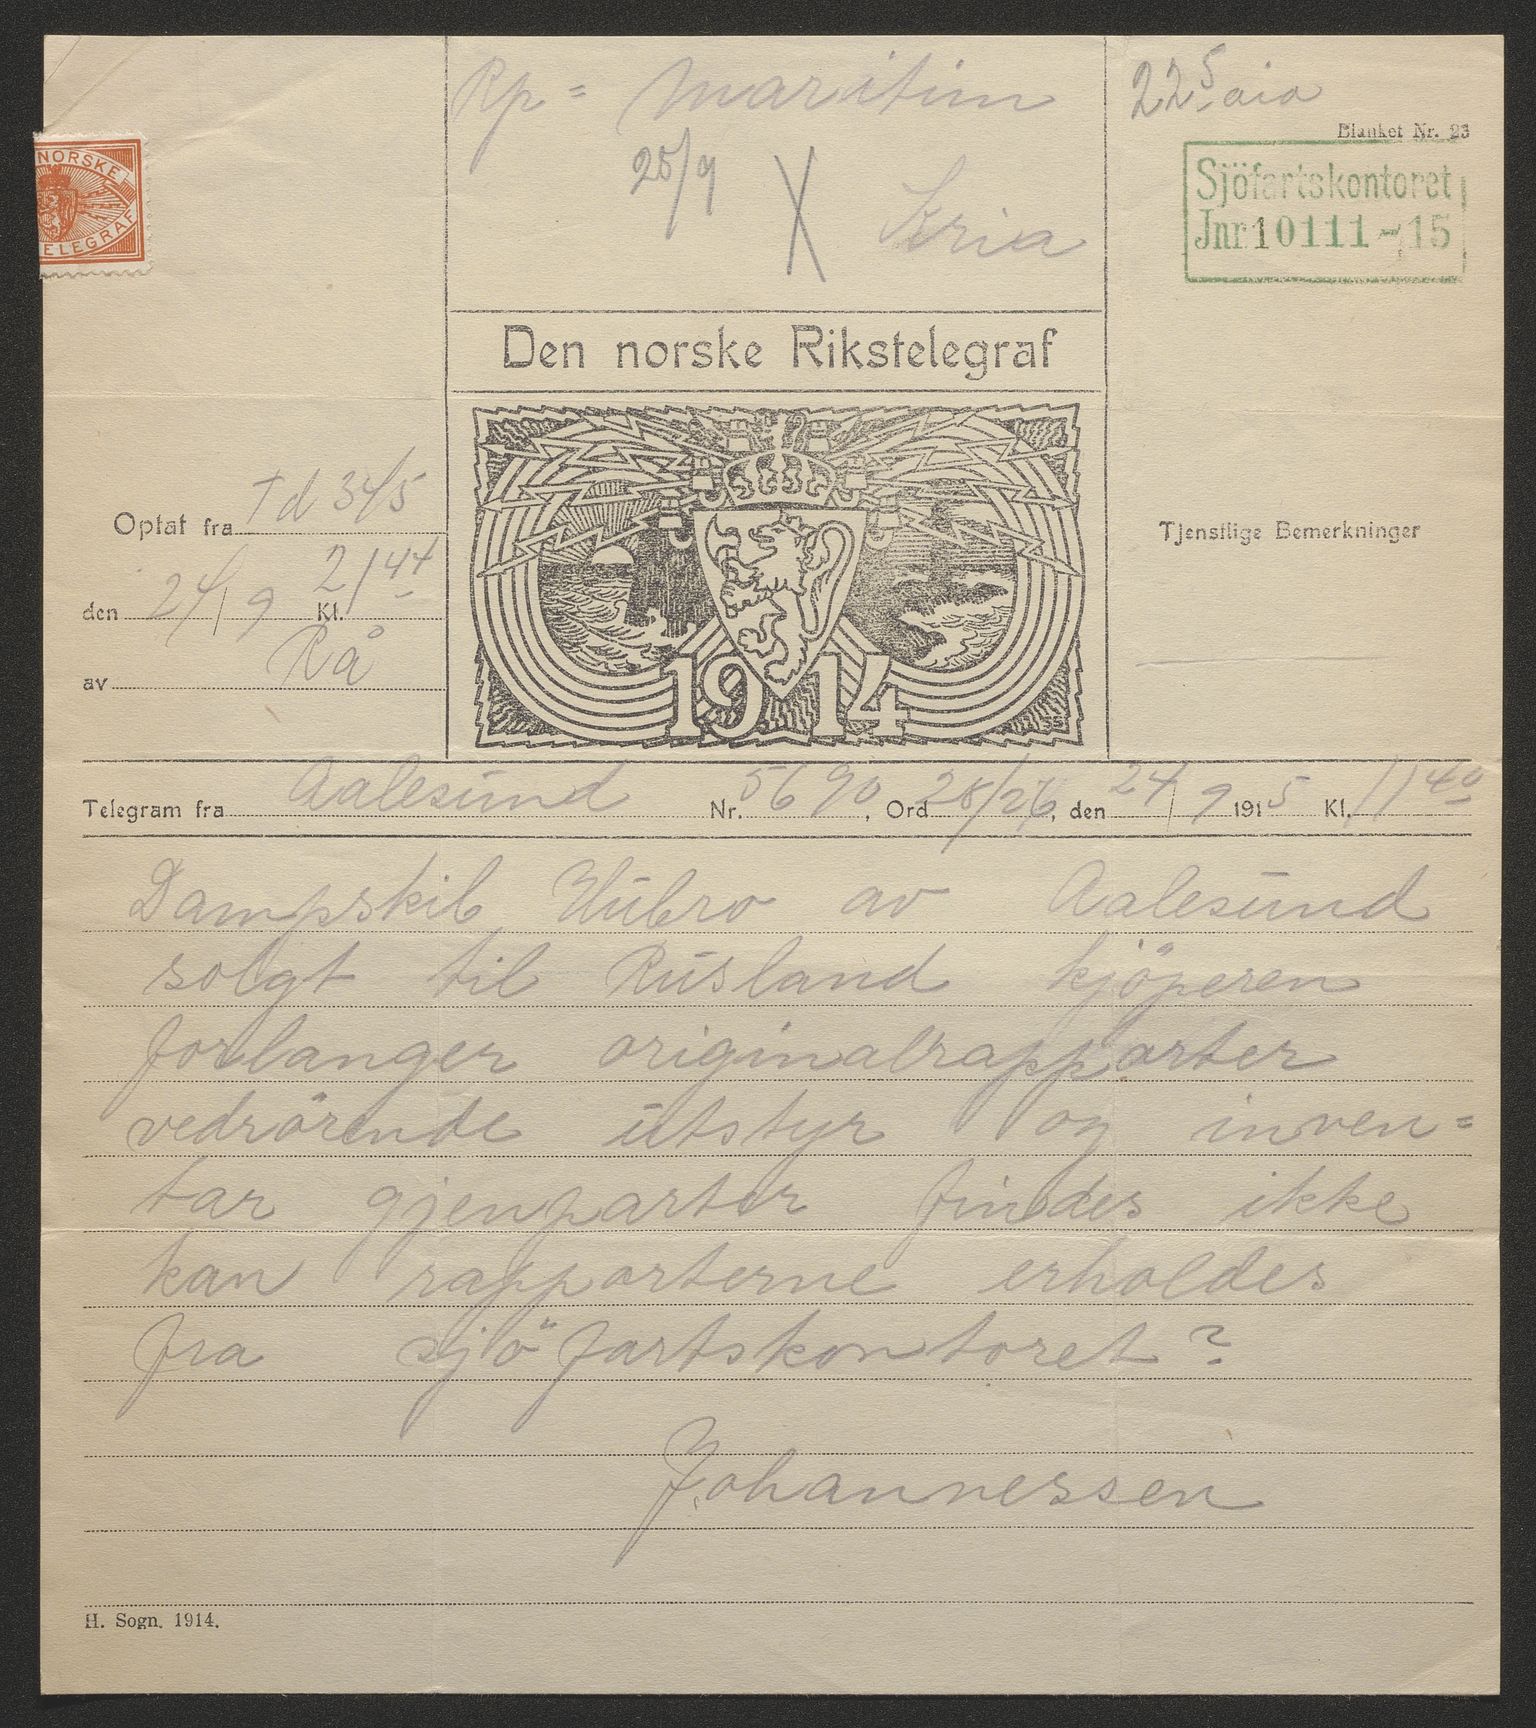 Rp = Maritim
25/9 X Kria
22⁵ aia
Blanket Nr. 23
Sjöfartskontoret
Jnr 10111 - 15
NORSKE
TELEGRAF
Den norske Rikstelegraf
1914
Optat fra Td 345
den 24/9 Kl. 21⁴⁴
av Rå
Tjenstlige Bemerkninger
Telegram fra Aalesund Nr. 5690, Ord 28/26, den 24/9 1915 Kl. 11⁴⁰
Dampskib Hubro av Aalesund
solgt til Rusland kjöperen
forlanger originalrapporter
vedrörende utstyr og inven=
tar gjenparter findes ikke
kan rapporterne erholdes
fra sjöfartskontoret?
Johannessen
H. Sogn. 1914.